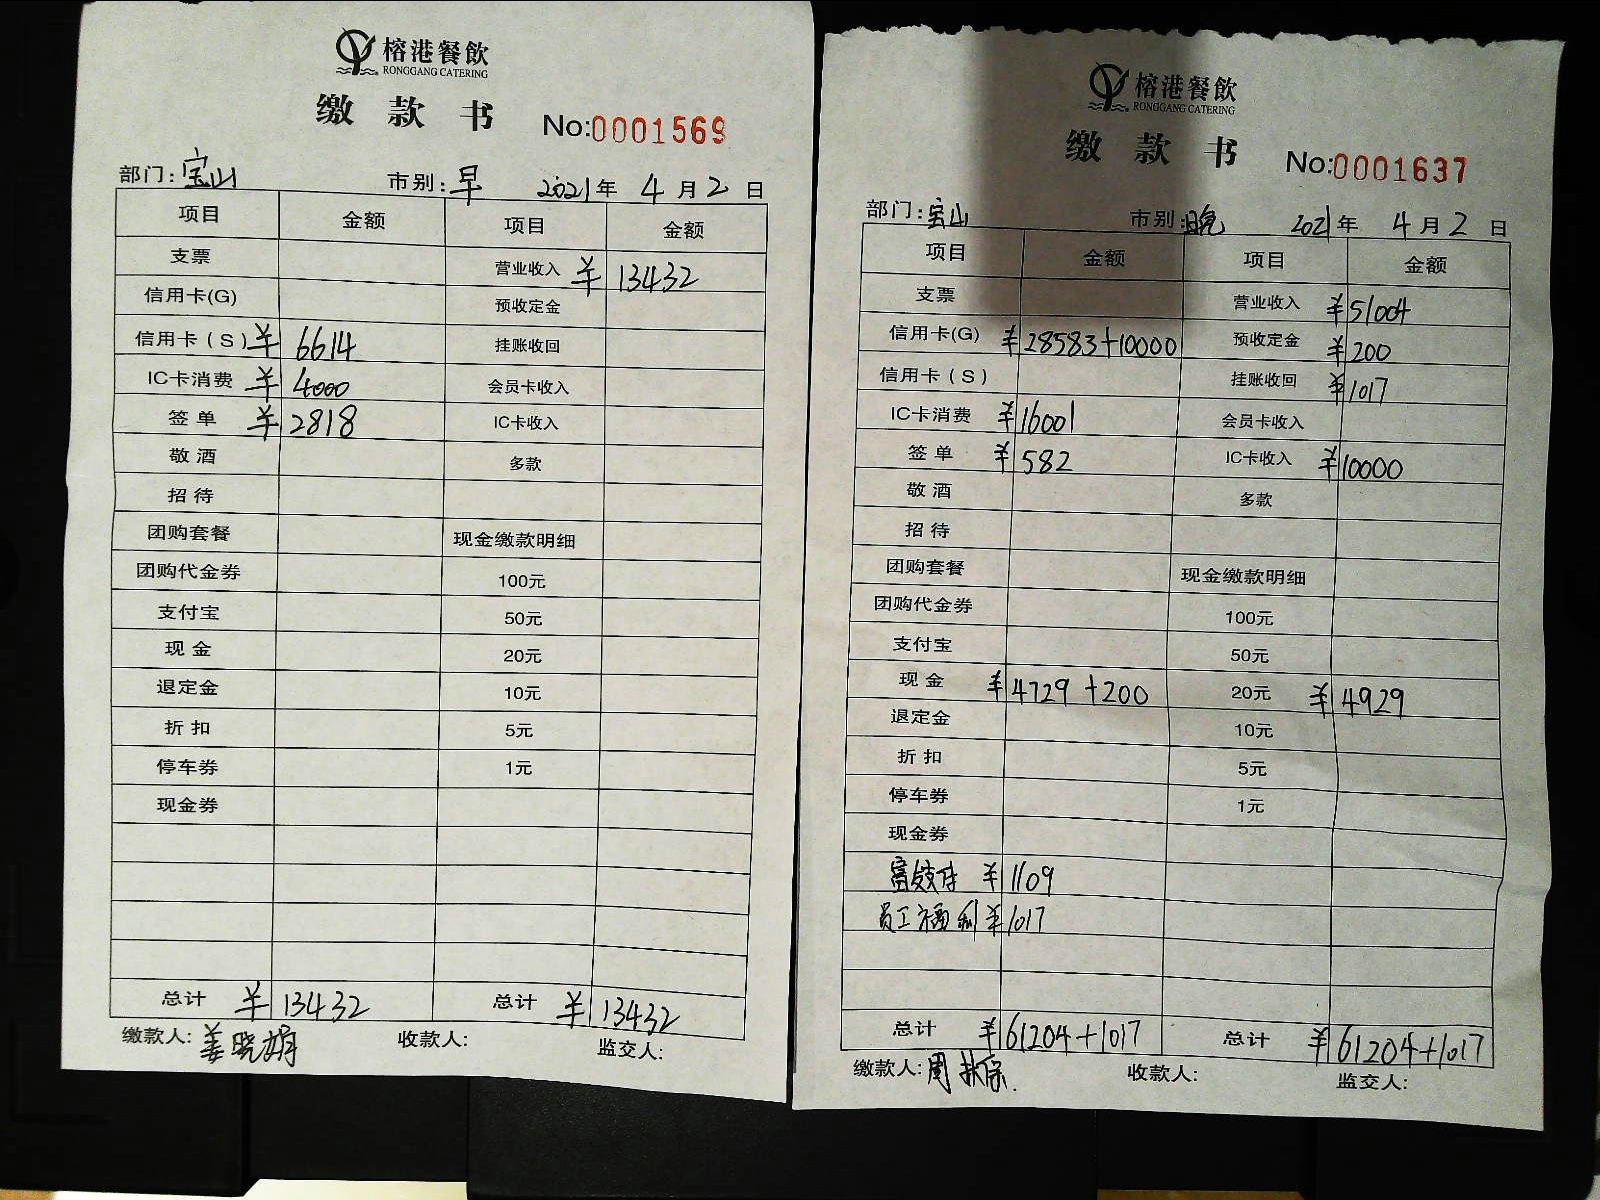 榕港餐飲
RONGGANG CATERING
缴款书 No:0001569
部门:宝山 市别:早 2021年4月2日
项目 金额 项目 金额
支票 营业收入 ¥13432
信用卡(G) 预收定金
信用卡(S) ¥6614 挂账收回
IC卡消费 ¥4000 会员卡收入
签单 ¥2818 IC卡收入
敬酒 多款
招待
团购套餐 现金缴款明细
团购代金券 100元
支付宝 50元
现金 20元
退定金 10元
折扣 5元
停车券 1元
现金券
总计 ¥13432 总计 ¥13432
缴款人:姜晓娟 收款人: 监交人:
榕港餐飲
RONGGANG CATERING
缴款书 No:0001637
部门:宝山 市别:晚 2021年4月2日
项目 金额 项目 金额
支票 营业收入 ¥51004
信用卡(G) ¥28583+10000 预收定金 ¥200
信用卡(S) 挂账收回 ¥1017
IC卡消费 ¥16001 会员卡收入
签单 ¥582 IC卡收入 ¥10000
敬酒 多款
招待
团购套餐 现金缴款明细
团购代金券 100元
支付宝 50元
现金 ¥4729+200 20元 ¥4929
退定金 10元
折扣 5元
停车券 1元
现金券
¥1109
员工福利 ¥1017
总计 ¥61204+1017 总计 ¥61204+1017
缴款人:周 收款人: 监交人: